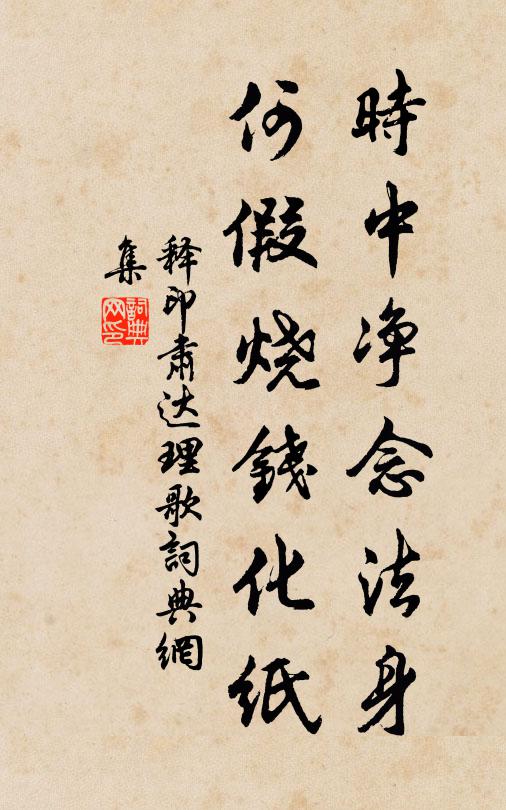 時中净念法身
何假燒錢化紙
释印肅达理歌詞典網
集
詞典网印